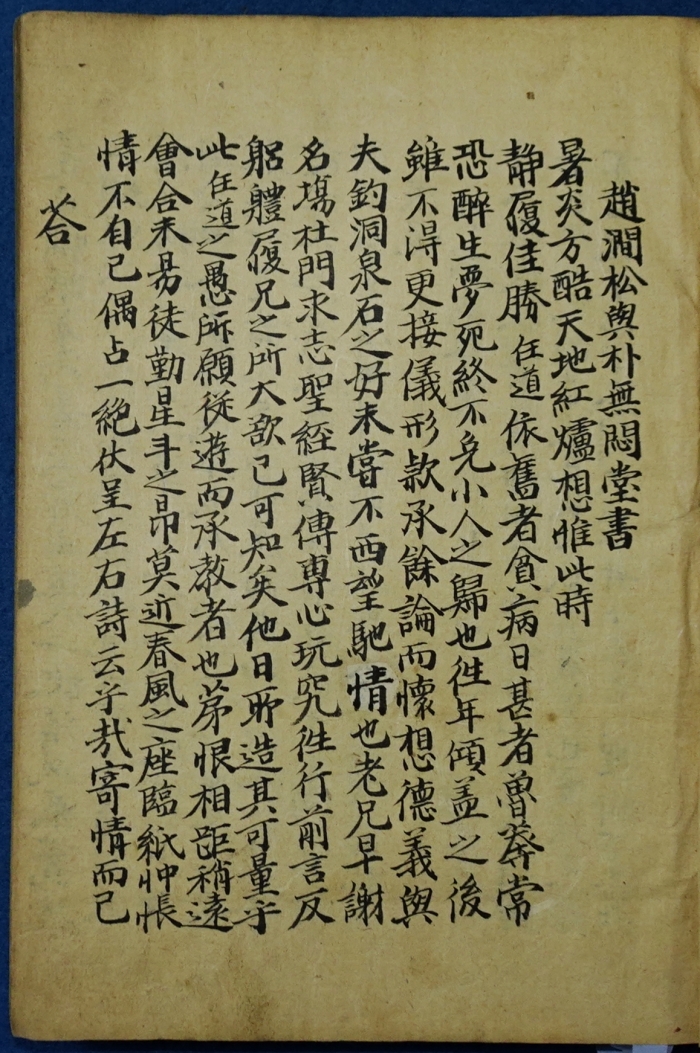 趙澗松與朴無悶堂書
暑炎方酷天地紅爐想惟此時
靜履佳勝任道依舊者貧病日甚者曾莽常
恐醉生夢死終不免小人之歸也徃年傾盖之後
雖不淂更接儀形款承餘論而懷想德義與
夫釣洞泉石之好未嘗不西望馳情也老兄早謝
名塲杜門求志聖経賢傳專心玩究徃行前言反
躬軆履兄之所大欲已可知矣他日所造其可量乎
此任道之愚所願從遊而承教者也第恨相距稍遠
會合未易徒勤星斗之昂莫近春風之座臨紙忡悵
情不自已偶占一絶伏呈左右詩云乎㢤寄情而已
荅